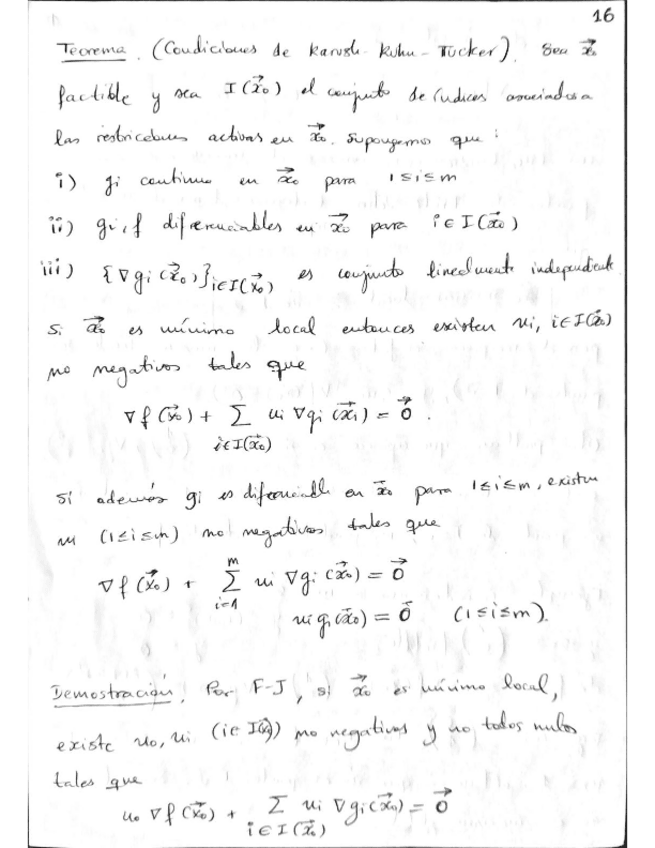 16
Teorema. (Condiciones de Karush-Kuhn-Tucker). Sea x⃗₀
factible y sea I(x⃗₀) el conjunto de índices asociados a
las restricciones activas en x⃗₀. Supongamos que:
i) gi continua en x⃗₀ para 1≤i≤m
ii) gi, f diferenciables en x⃗₀ para i∈I(x⃗₀)
iii) {∇gi(x⃗₀)}i∈I(x⃗₀) es conjunto linealmente independiente
Si x⃗₀ es mínimo local entonces existen ui, i∈I(x⃗₀)
no negativos tales que
∇f(x⃗₀) + Σ ui ∇gi(x⃗₁) = 0⃗.
i∈I(x⃗₀)
Si además gi es diferenciable en x⃗₀ para 1≤i≤m, existen
ui (1≤i≤m) no negativos tales que
∇f(x⃗₀) + Σ_{i=1}^{m} ui ∇gi(x⃗₀) = 0⃗
ui gi(x⃗₀) = 0⃗ (1≤i≤m).
Demostración. Por F-J, si x⃗₀ es mínimo local,
existe u₀, ui (i∈I(x⃗₀)) no negativos y no todos nulos
tales que
u₀ ∇f(x⃗₀) + Σ ui ∇gi(x⃗₀) = 0⃗
i∈I(x⃗₀)